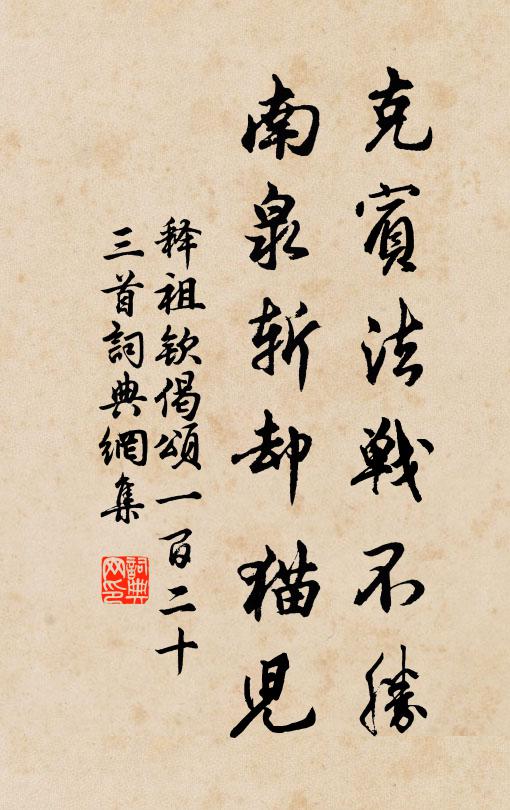 克賓法戰不勝
南泉斬却猫児
释祖钦偈頌一百二十
三首詞典網集
詞典
网印